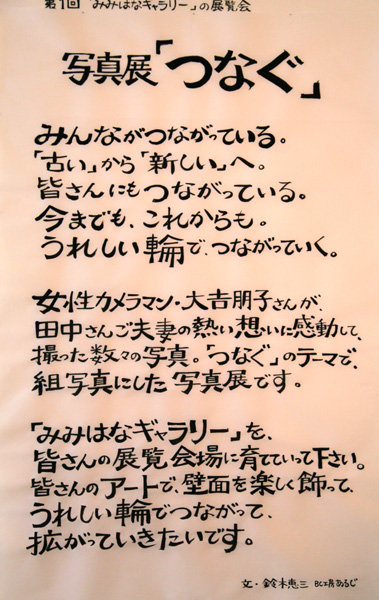 第1回 「みみはなギャラリー」の展覧会
写真展「つなぐ」
みんながつながっている。
「古い」から「新しい」へ。
皆さんにもつながっている。
今までも、これからも。
うれしい輪で、つながっていく。
女性カメラマン・大吉朋子さんが、
田中さんご夫妻の熱い想いに感動して、
撮った数々の写真。「つなぐ」のテーマで、
組写真にした写真展です。
「みみはなギャラリー」を、
皆さんの展覧会場に育てていって下さい。
皆さんのアートで、壁面を楽しく飾って、
うれしい輪でつながって、
拡がっていきたいです。
文・鈴木恵三 BC工房あるじ